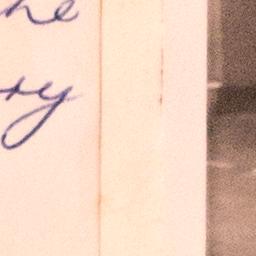 he
ry